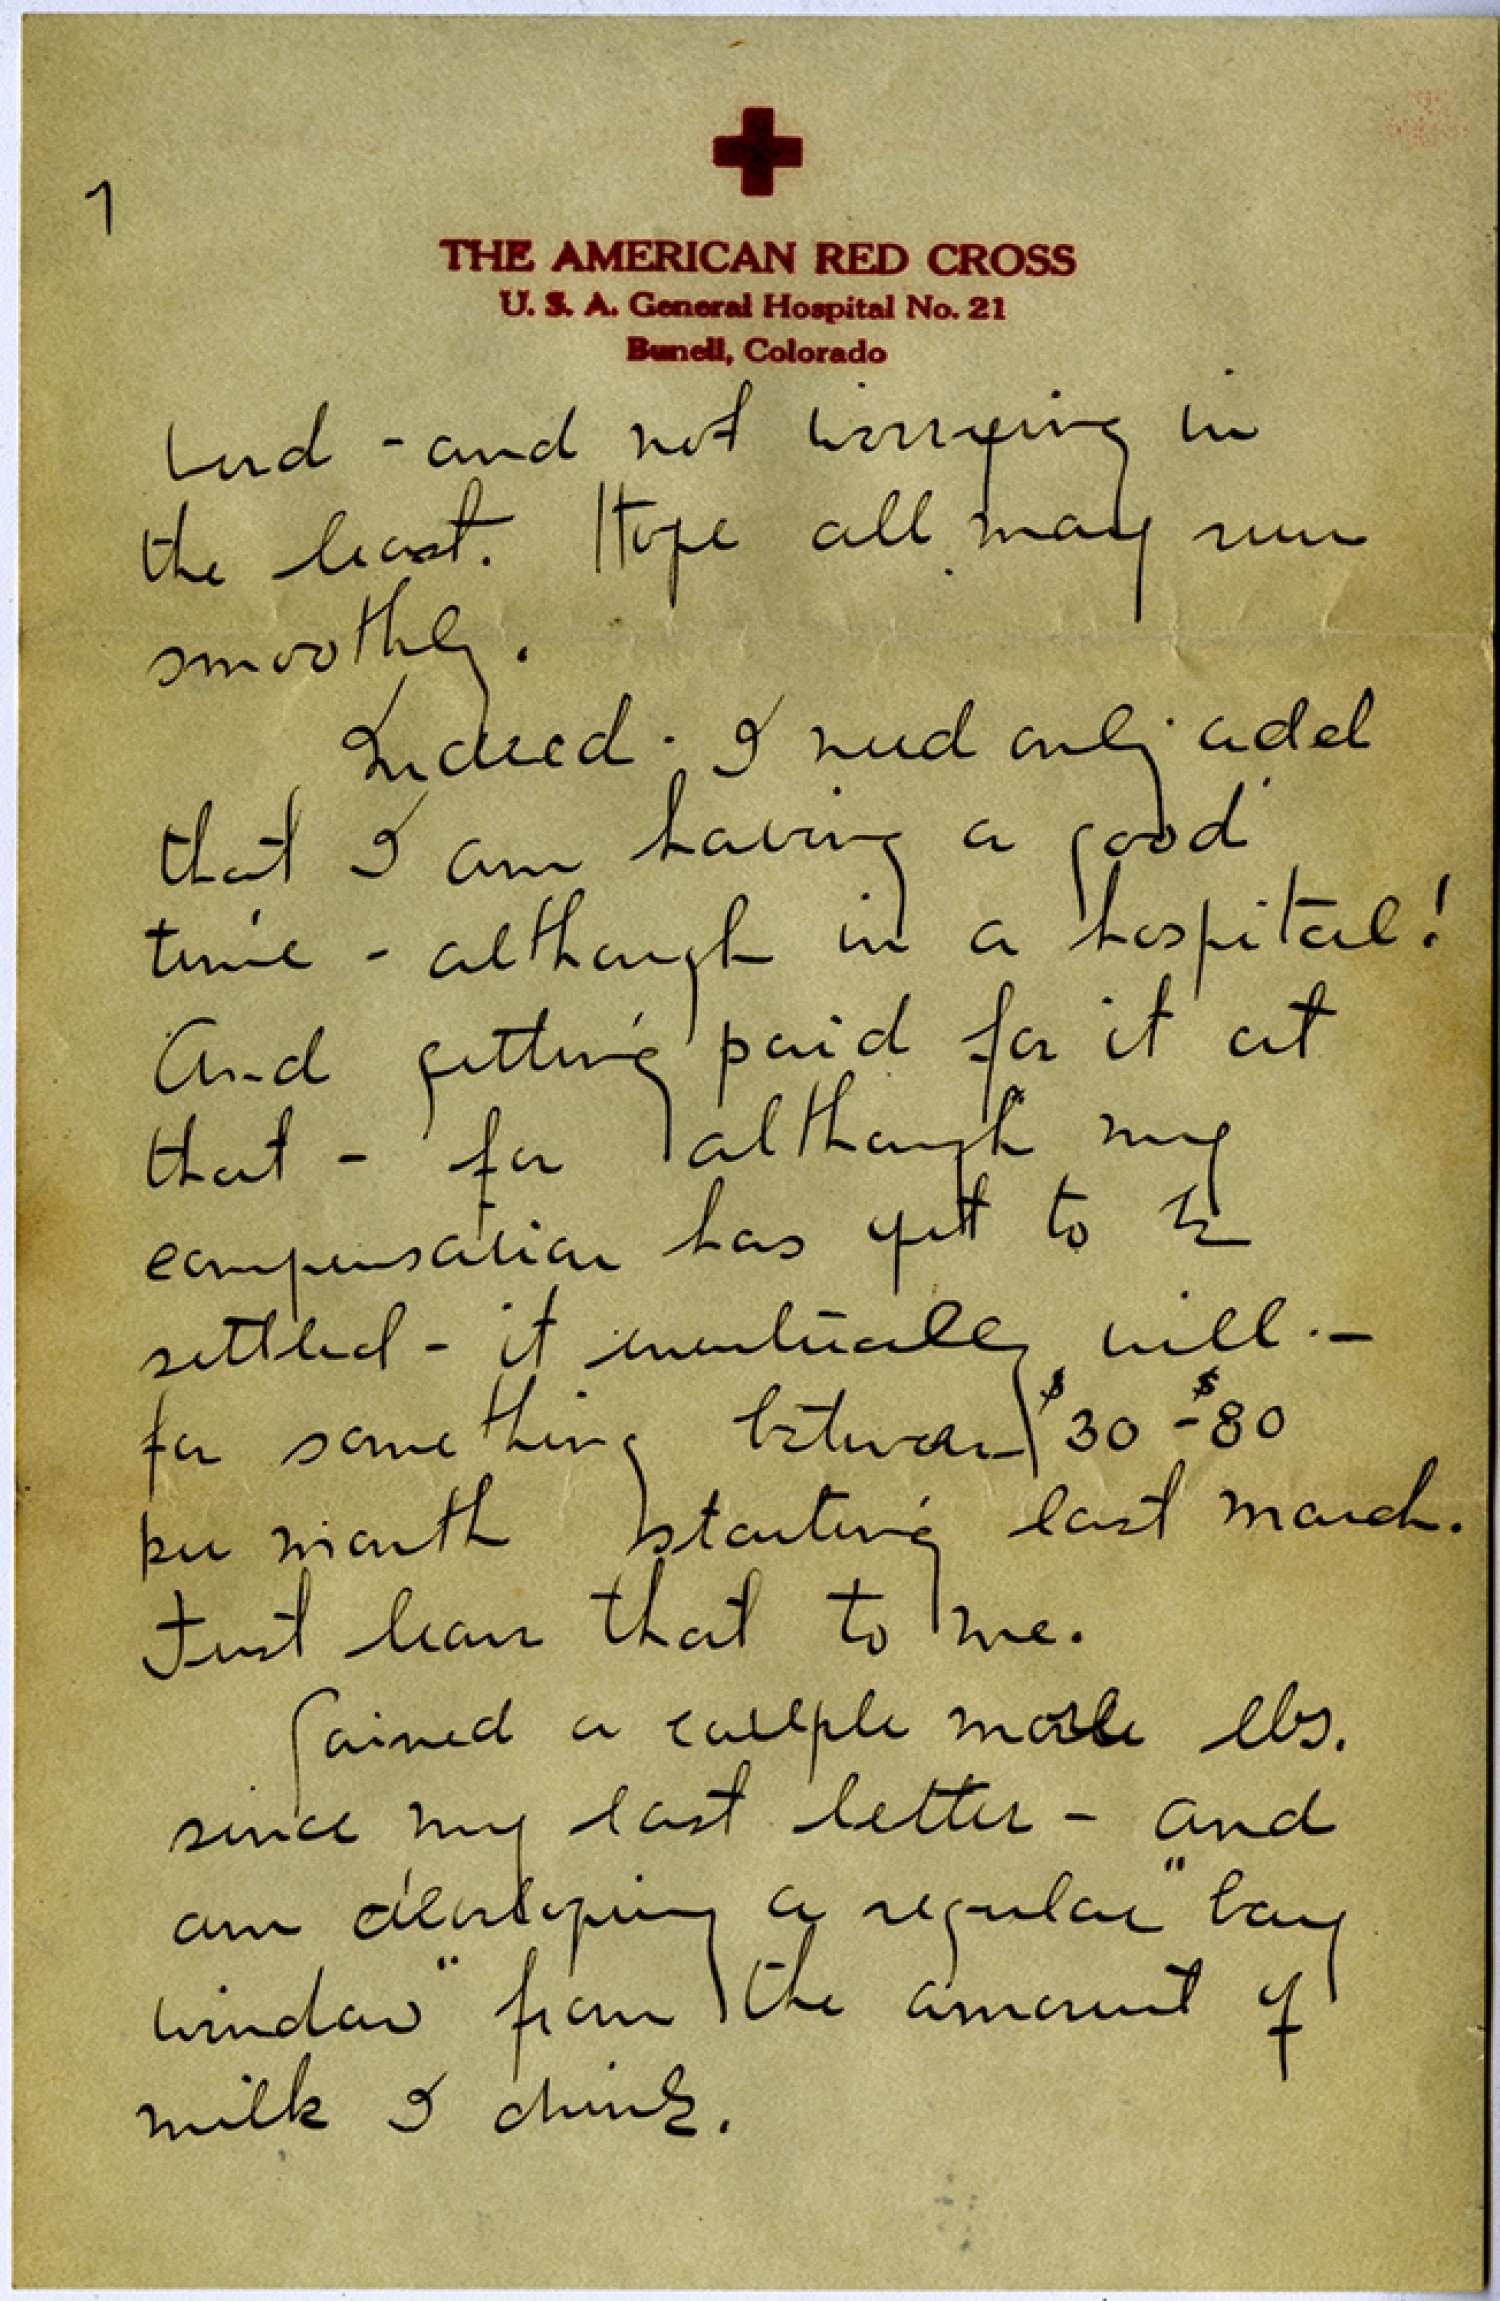 7
THE AMERICAN RED CROSS
U. S. A. General Hospital No. 21
Bunell, Colorado
- and not worrying in
the least. Hope all may run
smoothly.
Indeed - I need only add
that I am having a good
time - although in a hospital!
And getting paid for it at
that - for although my
compensation has yet to be
settled - it eventually will. -
for something between $30 - $80
per month starting last march.
Just leave that to me.
Gained a couple more lbs.
since my last letter - and
am developing a regular "bay
window" from the amount of
milk I drink.